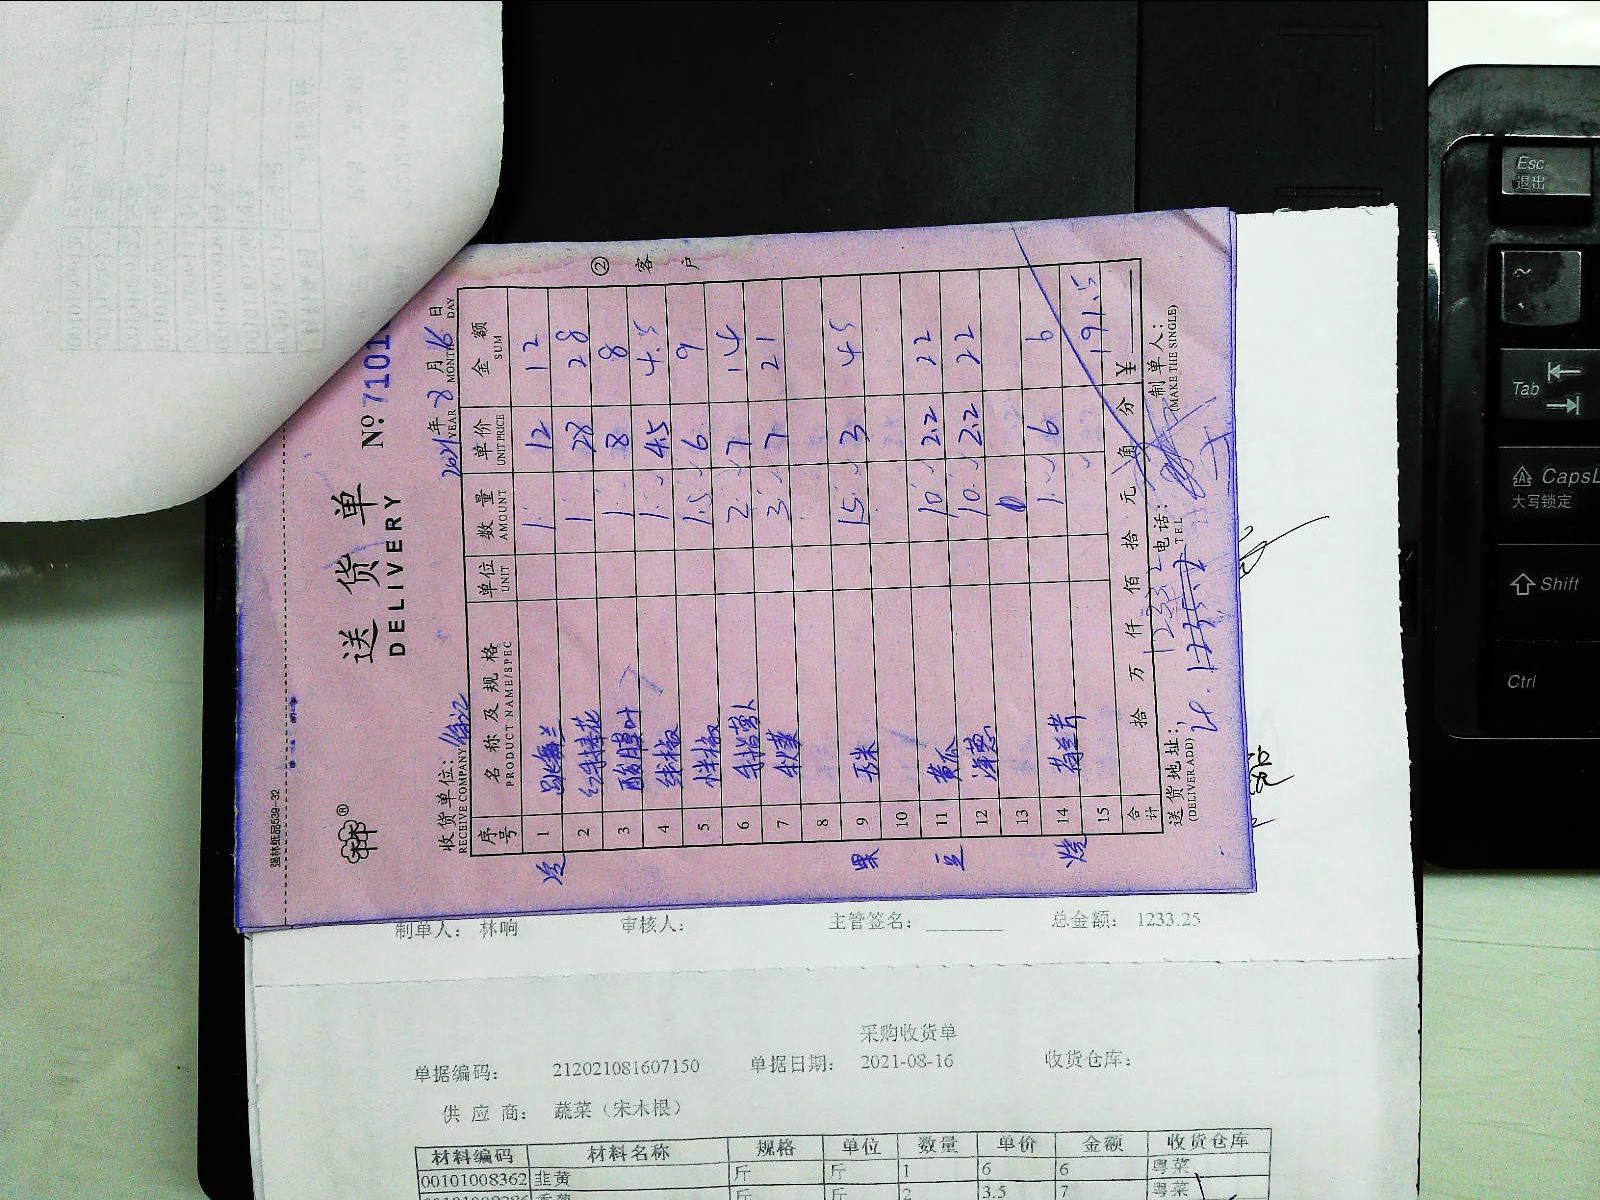 强林纸品539-32
送货单
DELIVERY
№ 7101
收货单位：徐记
RECEIVE COMPANY
2021年8月16日
YEAR MONTH DAY
序号 名称及规格 单位 数量 单价 金额
PRODUCT NAME/SPEC UNIT AMOUNT UNIT PRICE SUM
冷 1 跳舞兰 1 12 12
2 1 28 28
3 酸膜叶 1 8 8
4 线椒 1 4.5 4.5
5 杭椒 1.5 6 9
6 手指萝卜 2 7 14
7 秋葵 3 7 21
8
果 9 玉米 15 3 45
10
豆 11 黄瓜 10 2.2 22
12 洋葱 10 2.2 22
13
烧 14 荷兰芹 1 6 6
15 191.5
合计 拾 万 仟 佰 拾 元 角 分 ¥
送货地址：
(DELIVER ADD)
1233.2
电话：
TEL
制单人：
(MAKE THE SINGLE)
②客户
制单人： 林响 审核人： 主管签名： 总金额： 1233.25
采购收货单
单据编码： 212021081607150 单据日期： 2021-08-16 收货仓库：
供应商： 蔬菜（宋木根）
材料编码 材料名称 规格 单位 数量 单价 金额 收货仓库
00101008362 韭黄 斤 斤 1 6 6 粤菜
斤 斤 2 3.5 7 粤菜
Esc
退出
~
Tab
CapsL
大写锁定
Shift
Ctrl